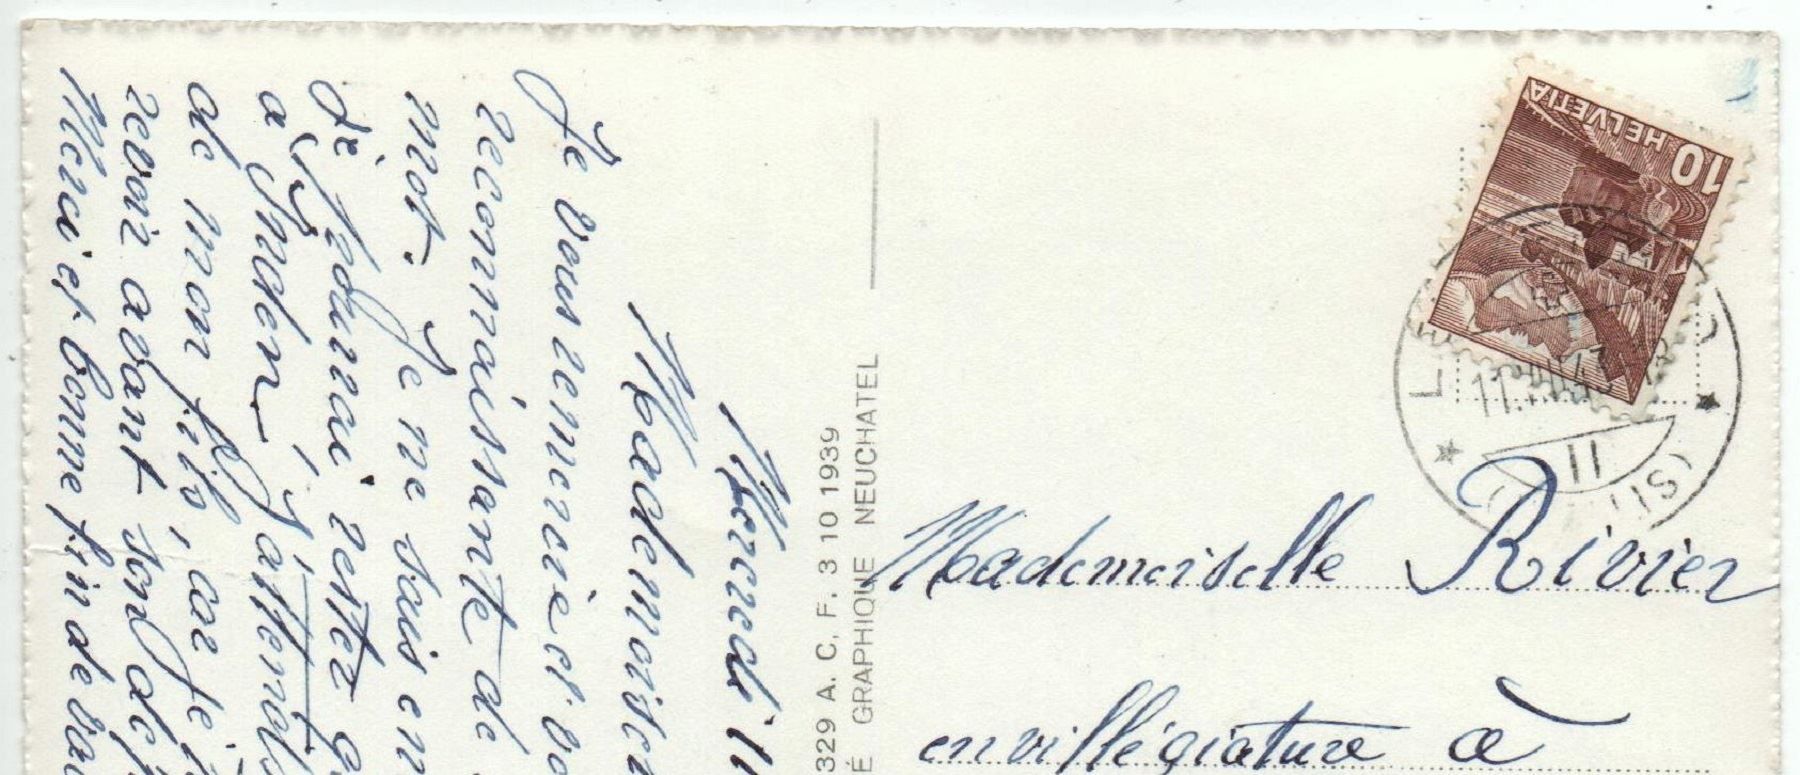 Mercredi 11
Mademoisel
Je vous remercie et vo
reconnaissante de
mot. Je ne sais en
si pourrai rester
a Inden, j'attends
de mon fils, car je
revoir avant son dép
Merci et bonne fin de va
329 A. C. F. 3 10 1939
É GRAPHIQUE NEUCHATEL
HELVETIA 10
L
11.
II
Mademoiselle Rivier
en villégiature à